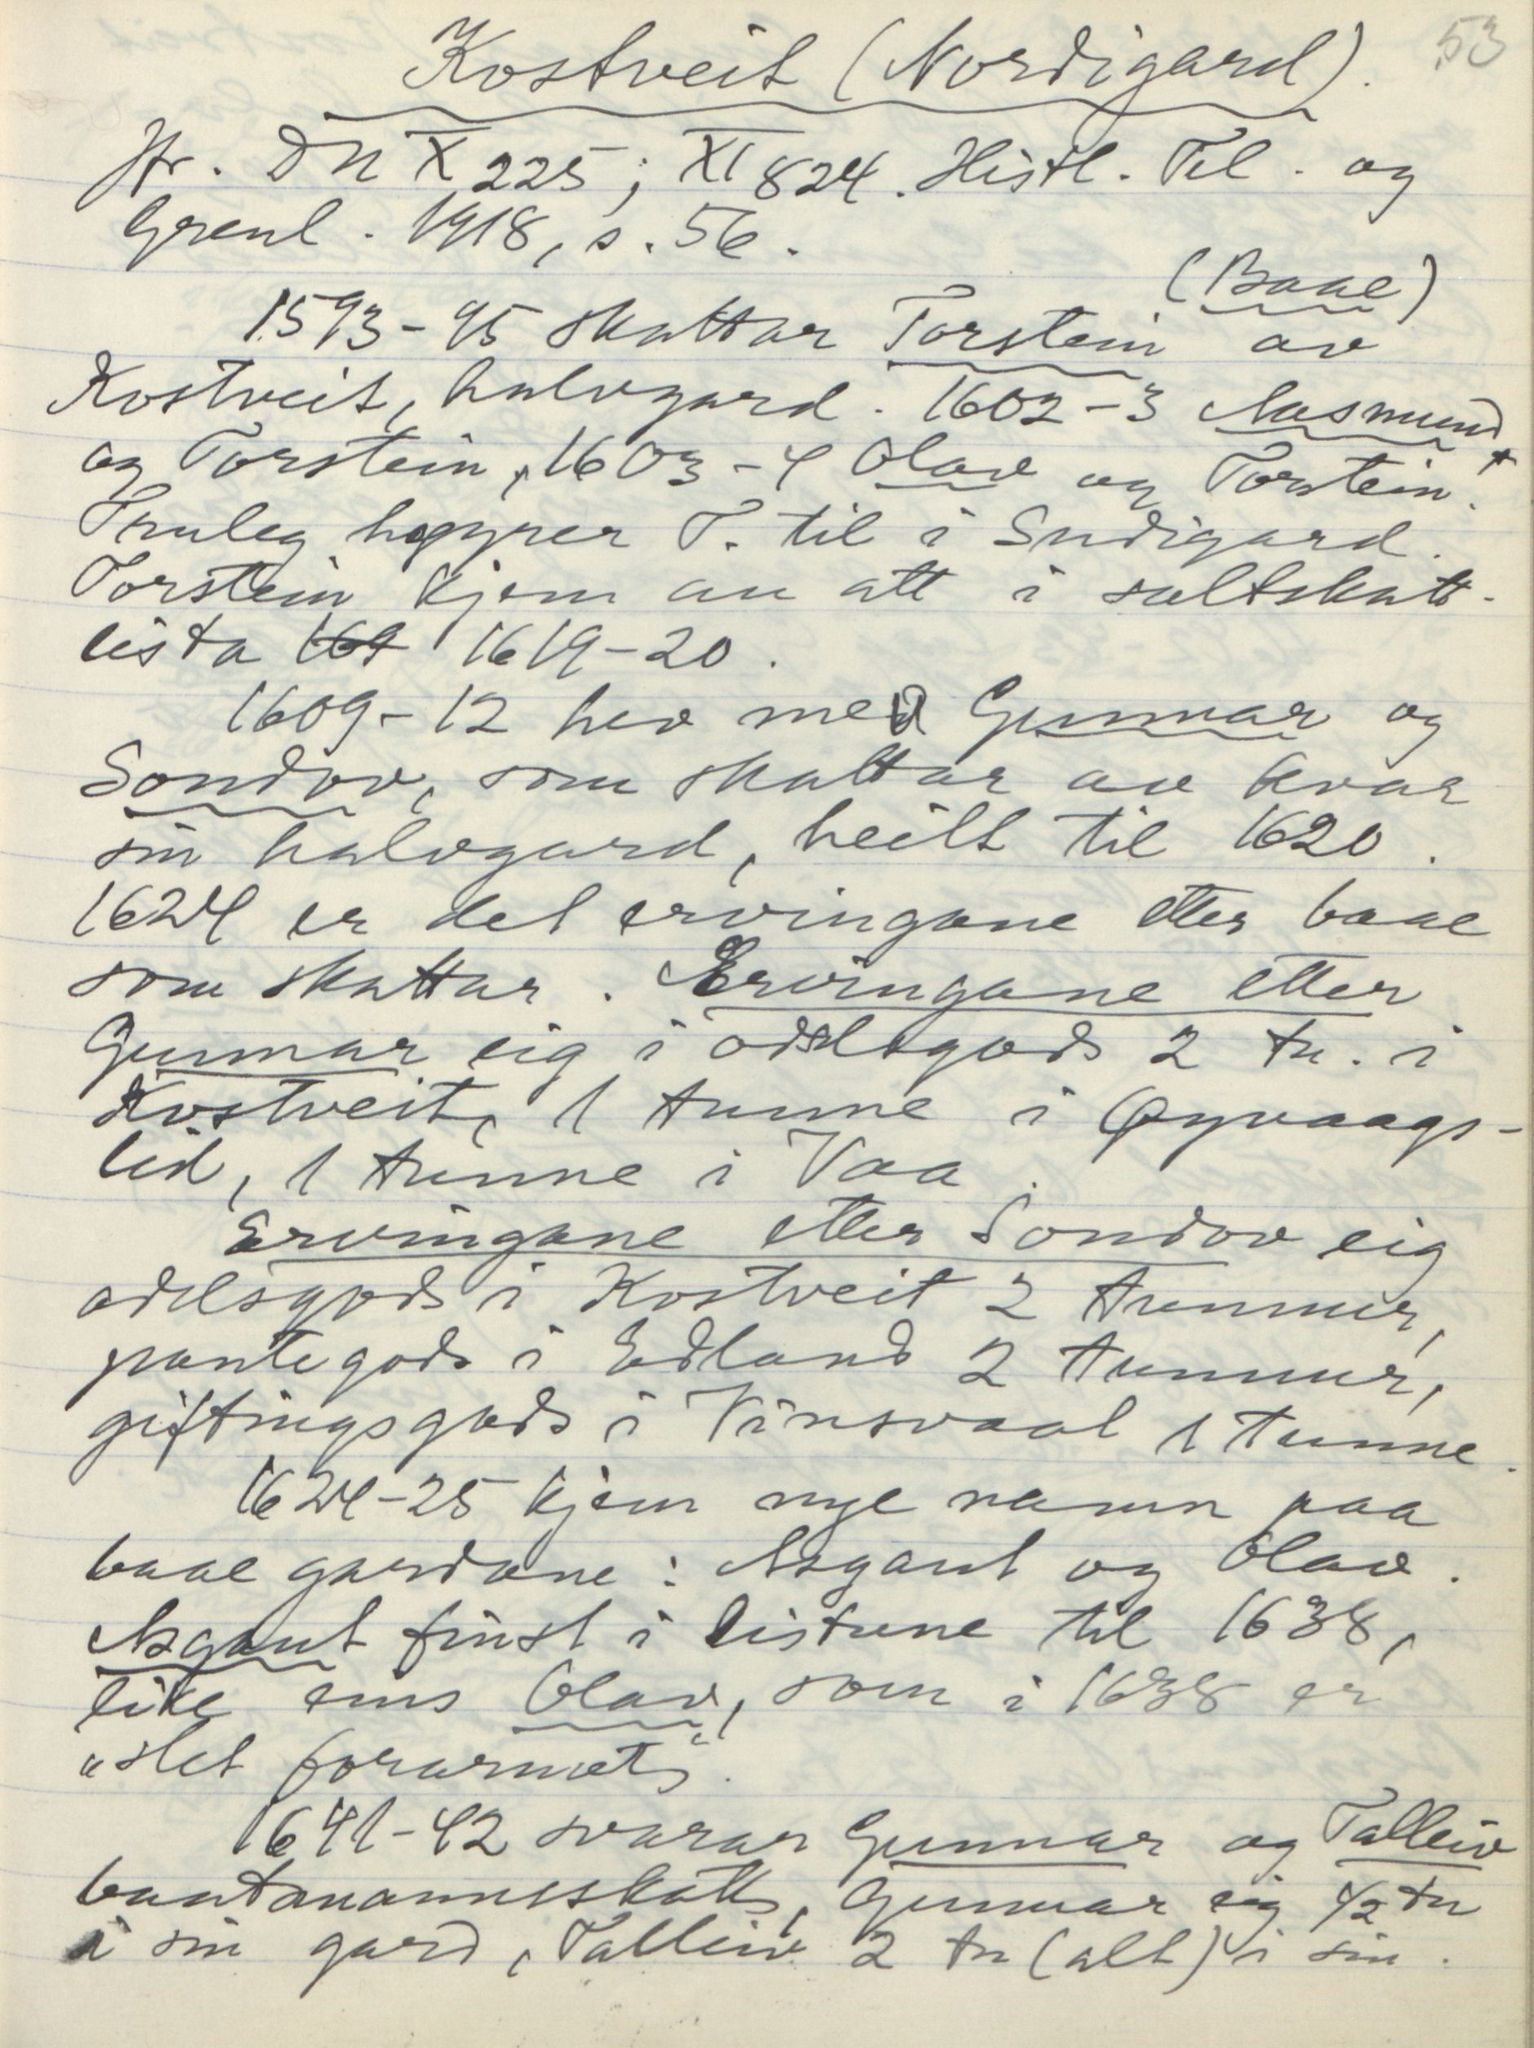 53
Kostveit (Nordigard).
Jfr. DN X 225; XI 824. Histl. Tel. og
Grenl. 1918, s. 56.
(Baae)
1593-95 skattar Torstein av
Kostveit, halvgard. 1602-3 Aasmund
og Torstein, 1603-4 Olav og Torstein.+
Truleg høyrer T. til i Sudigard.
Torstein kjem au att i saltskatt-
lista 161 1619-20.
1609-12 hev me Gunnar og
Sondov, som skattar av kvar
sin halvgard, heilt til 1620.
1624 er det ervingane etter baae
som skattar. Ervingane etter
Gunnar eig i odelsgods 2 tn. i
Kostveit, 1 tunne i Øyvaags-
lid, 1 tunne i Vaa.
Ervingane etter Sondov eig
odelsgods i Kostveit 2 tunnur,
pantegods i Edland 2 tunnur,
giftingsgods i Vinsvaal 1 tunne.
1624-25 kjem nye namn paa
baae gardane: Asgaut og Olav.
Asgaut finst i listune til 1638,
like eins Olav, som i 1638 er
"slet forarmet".
1641-42 svarar Gunnar og Talleiv
bautamannsskatt, Gunnar eig 1/2 tn
i sin gard, Talleiv 2 tn (alt) i sin.